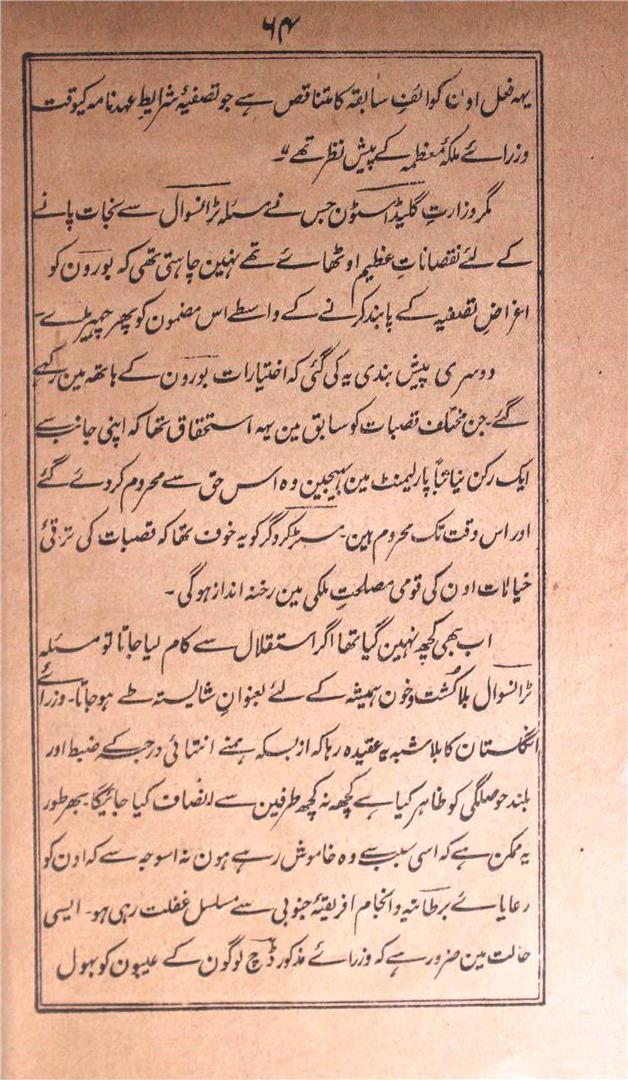 ۶۴
یہہ فعل اون کوائفِ سابقہ کا متناقص ہے جو تصفیۂ شرایطِ عہدنامہ کیوقت
وزرائے ملکۂ معظمہ کے پیش نظر تھے۔
مگر وزارتِ گلیڈاسٹون جس نے مسئلہ ٹرانسوال سے نجات پانے
کے لئے نقصاناتِ عظیم اوٹھائے تھے نہین چاہتی تھی کہ بورون کو
اغراضِ تصفیہ کے پابند کرنے کے واسطے اس مضمون کو پھر چھیڑے۔
دوسری پیش بندی یہ کی گئی کہ اختیارات بورون کے ہاتھ مین رکھے
گئے۔ جن مختلف قصبات کو سابق مین یہہ استحقاق تھا کہ اپنی جانب سے
ایک رکن نیابتاً پارلیمنٹ مین بھیجین وہ اس حق سے محروم کر دئے گئے
اور اس وقت تک محروم ہین۔ مسٹر کروگر کو یہ خوف تھا کہ قصبات کی ترقیٔ
خیالات اون کی قومی مصلحتِ ملکی مین رخنہ انداز ہوگی۔
اب بھی کچھ نہین گیا تھا اگر استقلال سے کام لیا جاتا تو مسئلہ
ٹرانسوال بلا کشت و خون ہمیشہ کے لئے بعنوانِ شایستہ طے ہو جاتا۔ وزرائے
انگلستان کا بلا شبہ یہ عقیدہ رہا کہ ازبسکہ ہمنے انتہائی درجہ کے ضبط اور
بلند حوصلگی کو ظاہر کیا ہے کچھ نہ کچھ طرفین سے انصاف کیا جائیگا۔ بہرطور
یہ ممکن ہے کہ اسی سبب سے وہ خاموش رہے ہون نہ اسوجہ سے کہ اون کو
رعایائے برطانیہ و انجام افریقۂ جنوبی سے مسلسل غفلت رہی ہو۔ ایسی
حالت مین ضرور ہے کہ وزرائے مذکور ڈچ لوگون کے عیبون کو بھول